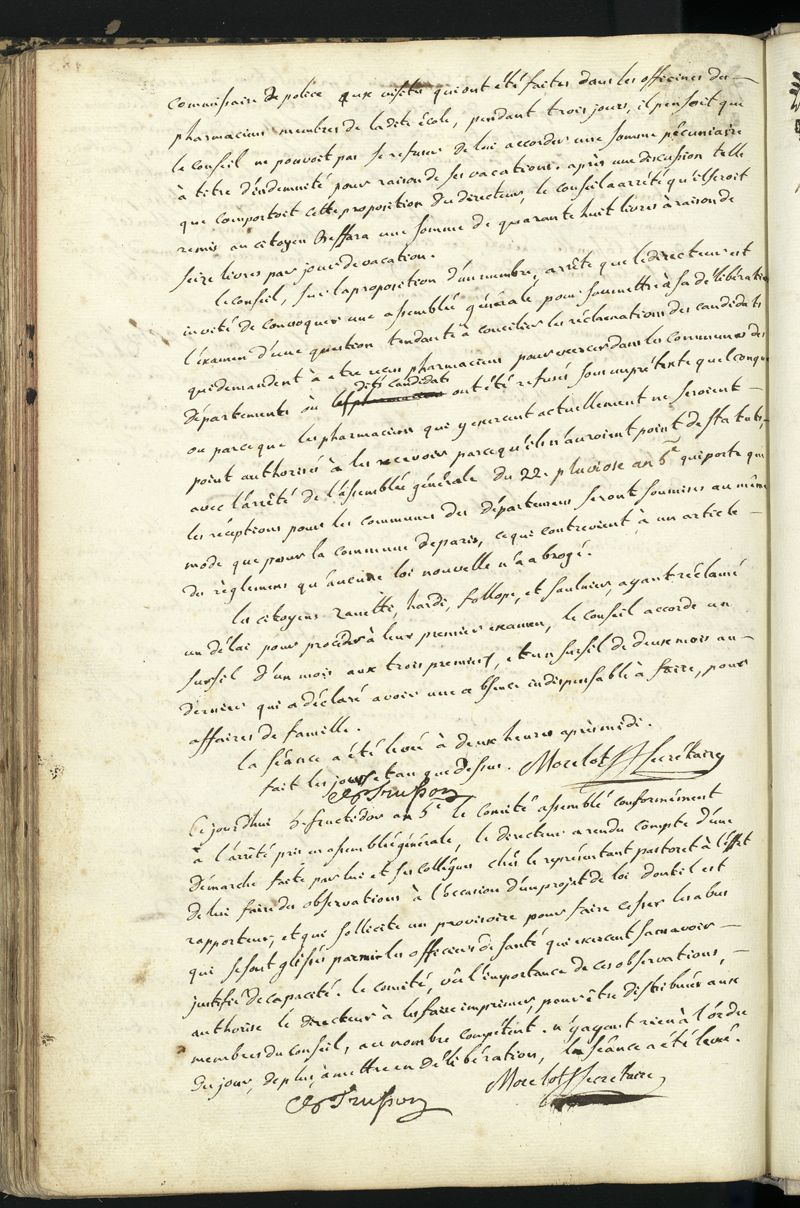 commissaire de police aux visites qui ont été faites dans les officines des
pharmaciens membres de la dite école, pendant trois jours, il pensoit que
le conseil ne pouvoit pas se refuser de lui accorder une somme pécuniaire
à titre d'indemnité pour raison de ses vacations. après une discussion telle
que comportoit cette proposition du directeur, le conseil a arrêté qu'il seroit
remis au citoyen Beffara une somme de quarante huit livres à raison de
seize livres par jour de vacation.
le conseil, sur la proposition d'un membre, arrête que le directeur est
invité de convoquer une assemblée générale pour soumettre à sa délibération
l'examen d'une question tendante à concilier les réclamations des candidats
qui demandent à etre reçus pharmaciens pour exercer dans les communes des
départements où les dits candidats ont été refusés sous un prétexte quelconque
ou parce que les pharmaciens qui y exercent actuellement ne seroient
point authorisés à les recevoir parce qu'ils n'auroient point de statuts,
avec l'arrêté de l'assemblée générale du 22. pluviose an 5e qui porte que
les réceptions pour les communes des départemens seront soumises au même
mode que pour la commune de paris, ce qui contrevient à un article
du règlement qu'aucune loi nouvelle n'a abrogé.
les citoyens Zanetti, hardi, follope, et Saulnier, ayant réclamé
un délai pour procéder à leur premier examen, le conseil accorde un
sursil d'un mois aux trois premiers, et un sursil de deux mois au
dernier qui a déclaré avoir une absence indispensable à faire, pour
affaires de famille.
la séance a été levée à deux heures après midi.
fait les jour et an que dessus. Morelot Secrétaire
Trusson
Ce jourdhui 5. fructidor an 5e le Comité assemblé conformément
à l'arrêté pris en assemblé générale, le directeur a rendu compte d'une
démarche faite par lui et ses collègues chés le représentant pastoret à l'effet
de lui faire des observations à l'occasion d'un projet de loi dont il est
rapporteur, et qui sollicite un provisoire pour faire cesser les abus
qui se sont glissés parmi les officiers de santé qui exercent sans avoir
justifié de capacité. le comité, vû l'importance de ces observations,
authorise le directeur à les faire imprimer, pour être distribuées aux
membres du conseil, au nombre compétent. n'y ayant rien à l'ordre
du jour, de plus, à mettre en délibération, la séance a été levée.
Trusson Morelot Secretaire